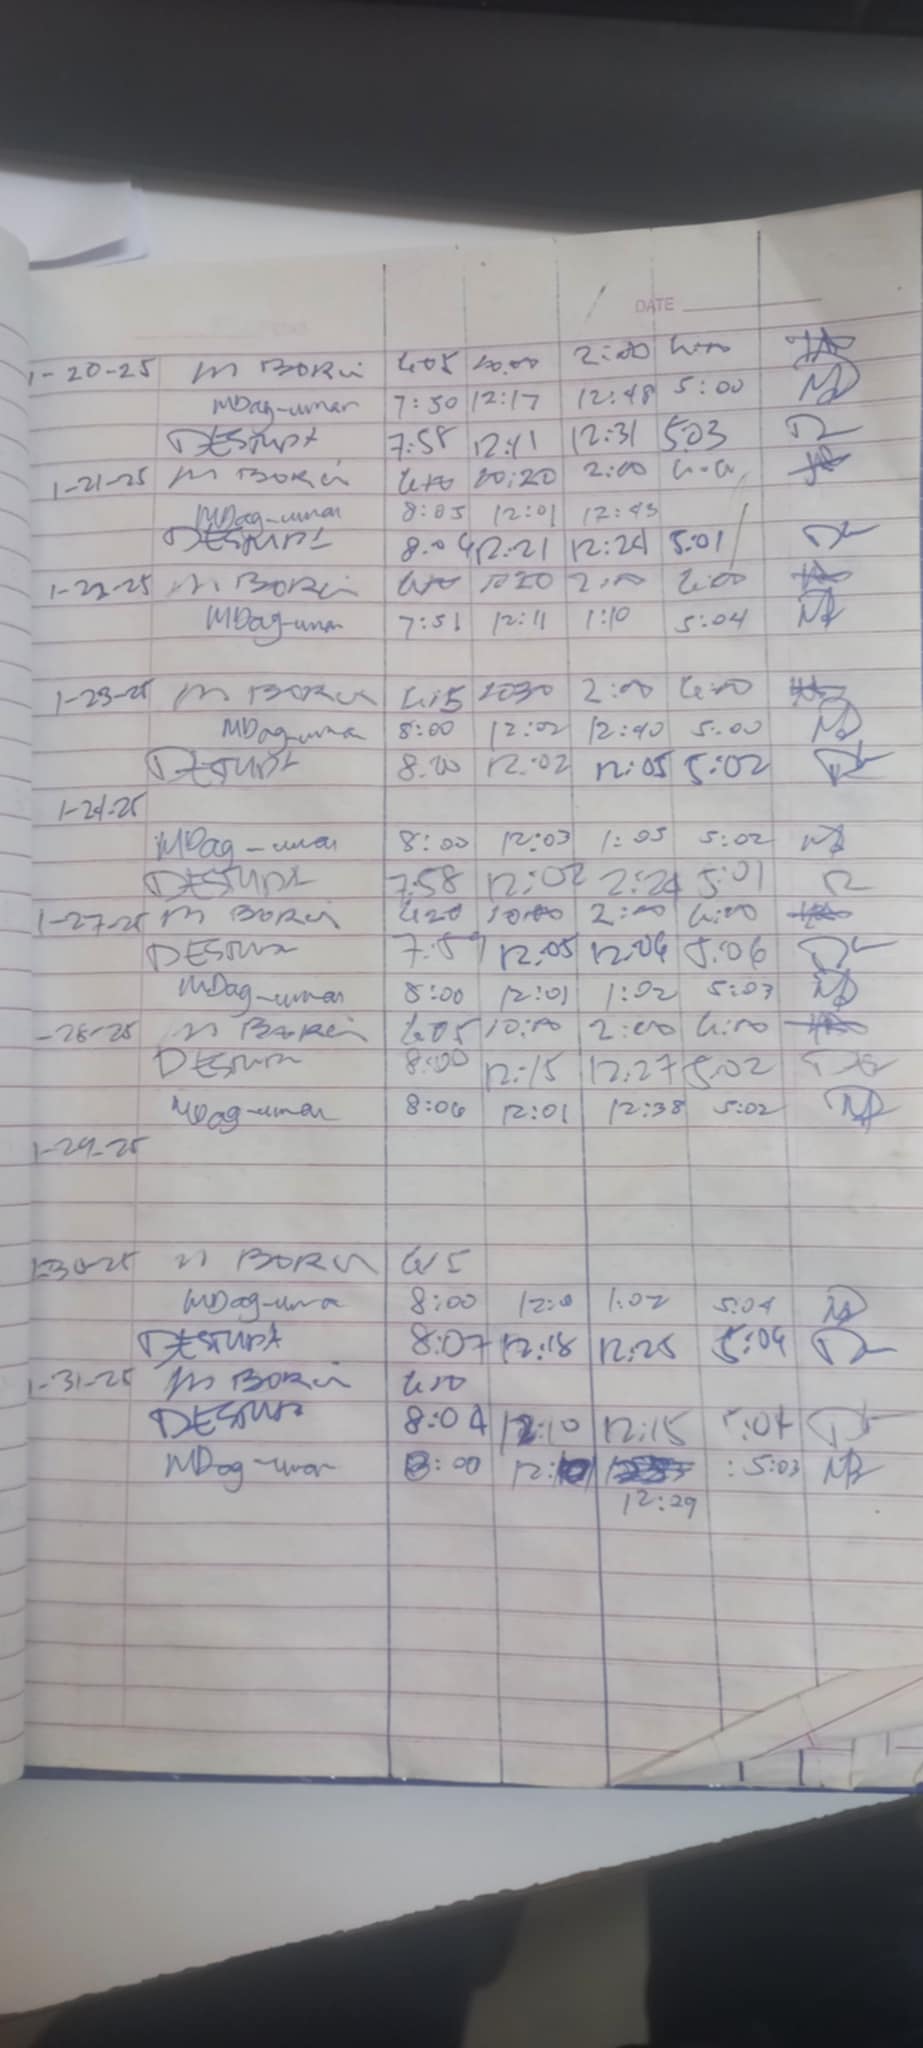 DATE
1-20-25 M BORCI 6:05 10:00 2:00 6:00
MDag-uman 7:50 12:17 12:48 5:00
DESTURA 7:58 12:11 12:31 5:03
1-21-25 M BORCI 10:20 2:00
MDag-uman 8:05 12:01 12:45
DESTURA 8:04 12:21 12:24 5:01
1-22-25 M BORCI 1020 2:00 6:00
MDag-uman 7:51 12:11 1:10 5:04
1-23-25 M BORCI 6:15 1030 2:00 6:00
MDag-uman 8:00 12:02 12:40 5:00
DESTURA 8:00 12:02 12:05 5:02
1-24-25
MDag-uman 8:00 12:03 1:05 5:02
DESTURA 7:58 12:02 2:24 5:01
1-27-25 M BORCI 620 10:00 2:00 6:00
DESTURA 7:59 12:05 12:06 5:06
MDag-uman 8:00 12:01 1:02 5:03
-28-25 M BORCI 605 10:00 2:00 6:00
DESTURA 8:00 12:15 12:27 5:02
MDag-uman 8:06 12:01 12:38 5:02
1-29-25
1-30-25 M BORCI 6:15
MDag-uma 8:00 1:02 5:04
DESTURA 8:07 12:18 12:25 5:04
1-31-25 M BORCI
DESTURA 8:04 12:10 12:15 :04
MDag-uman 8:00 :5:03
12:29